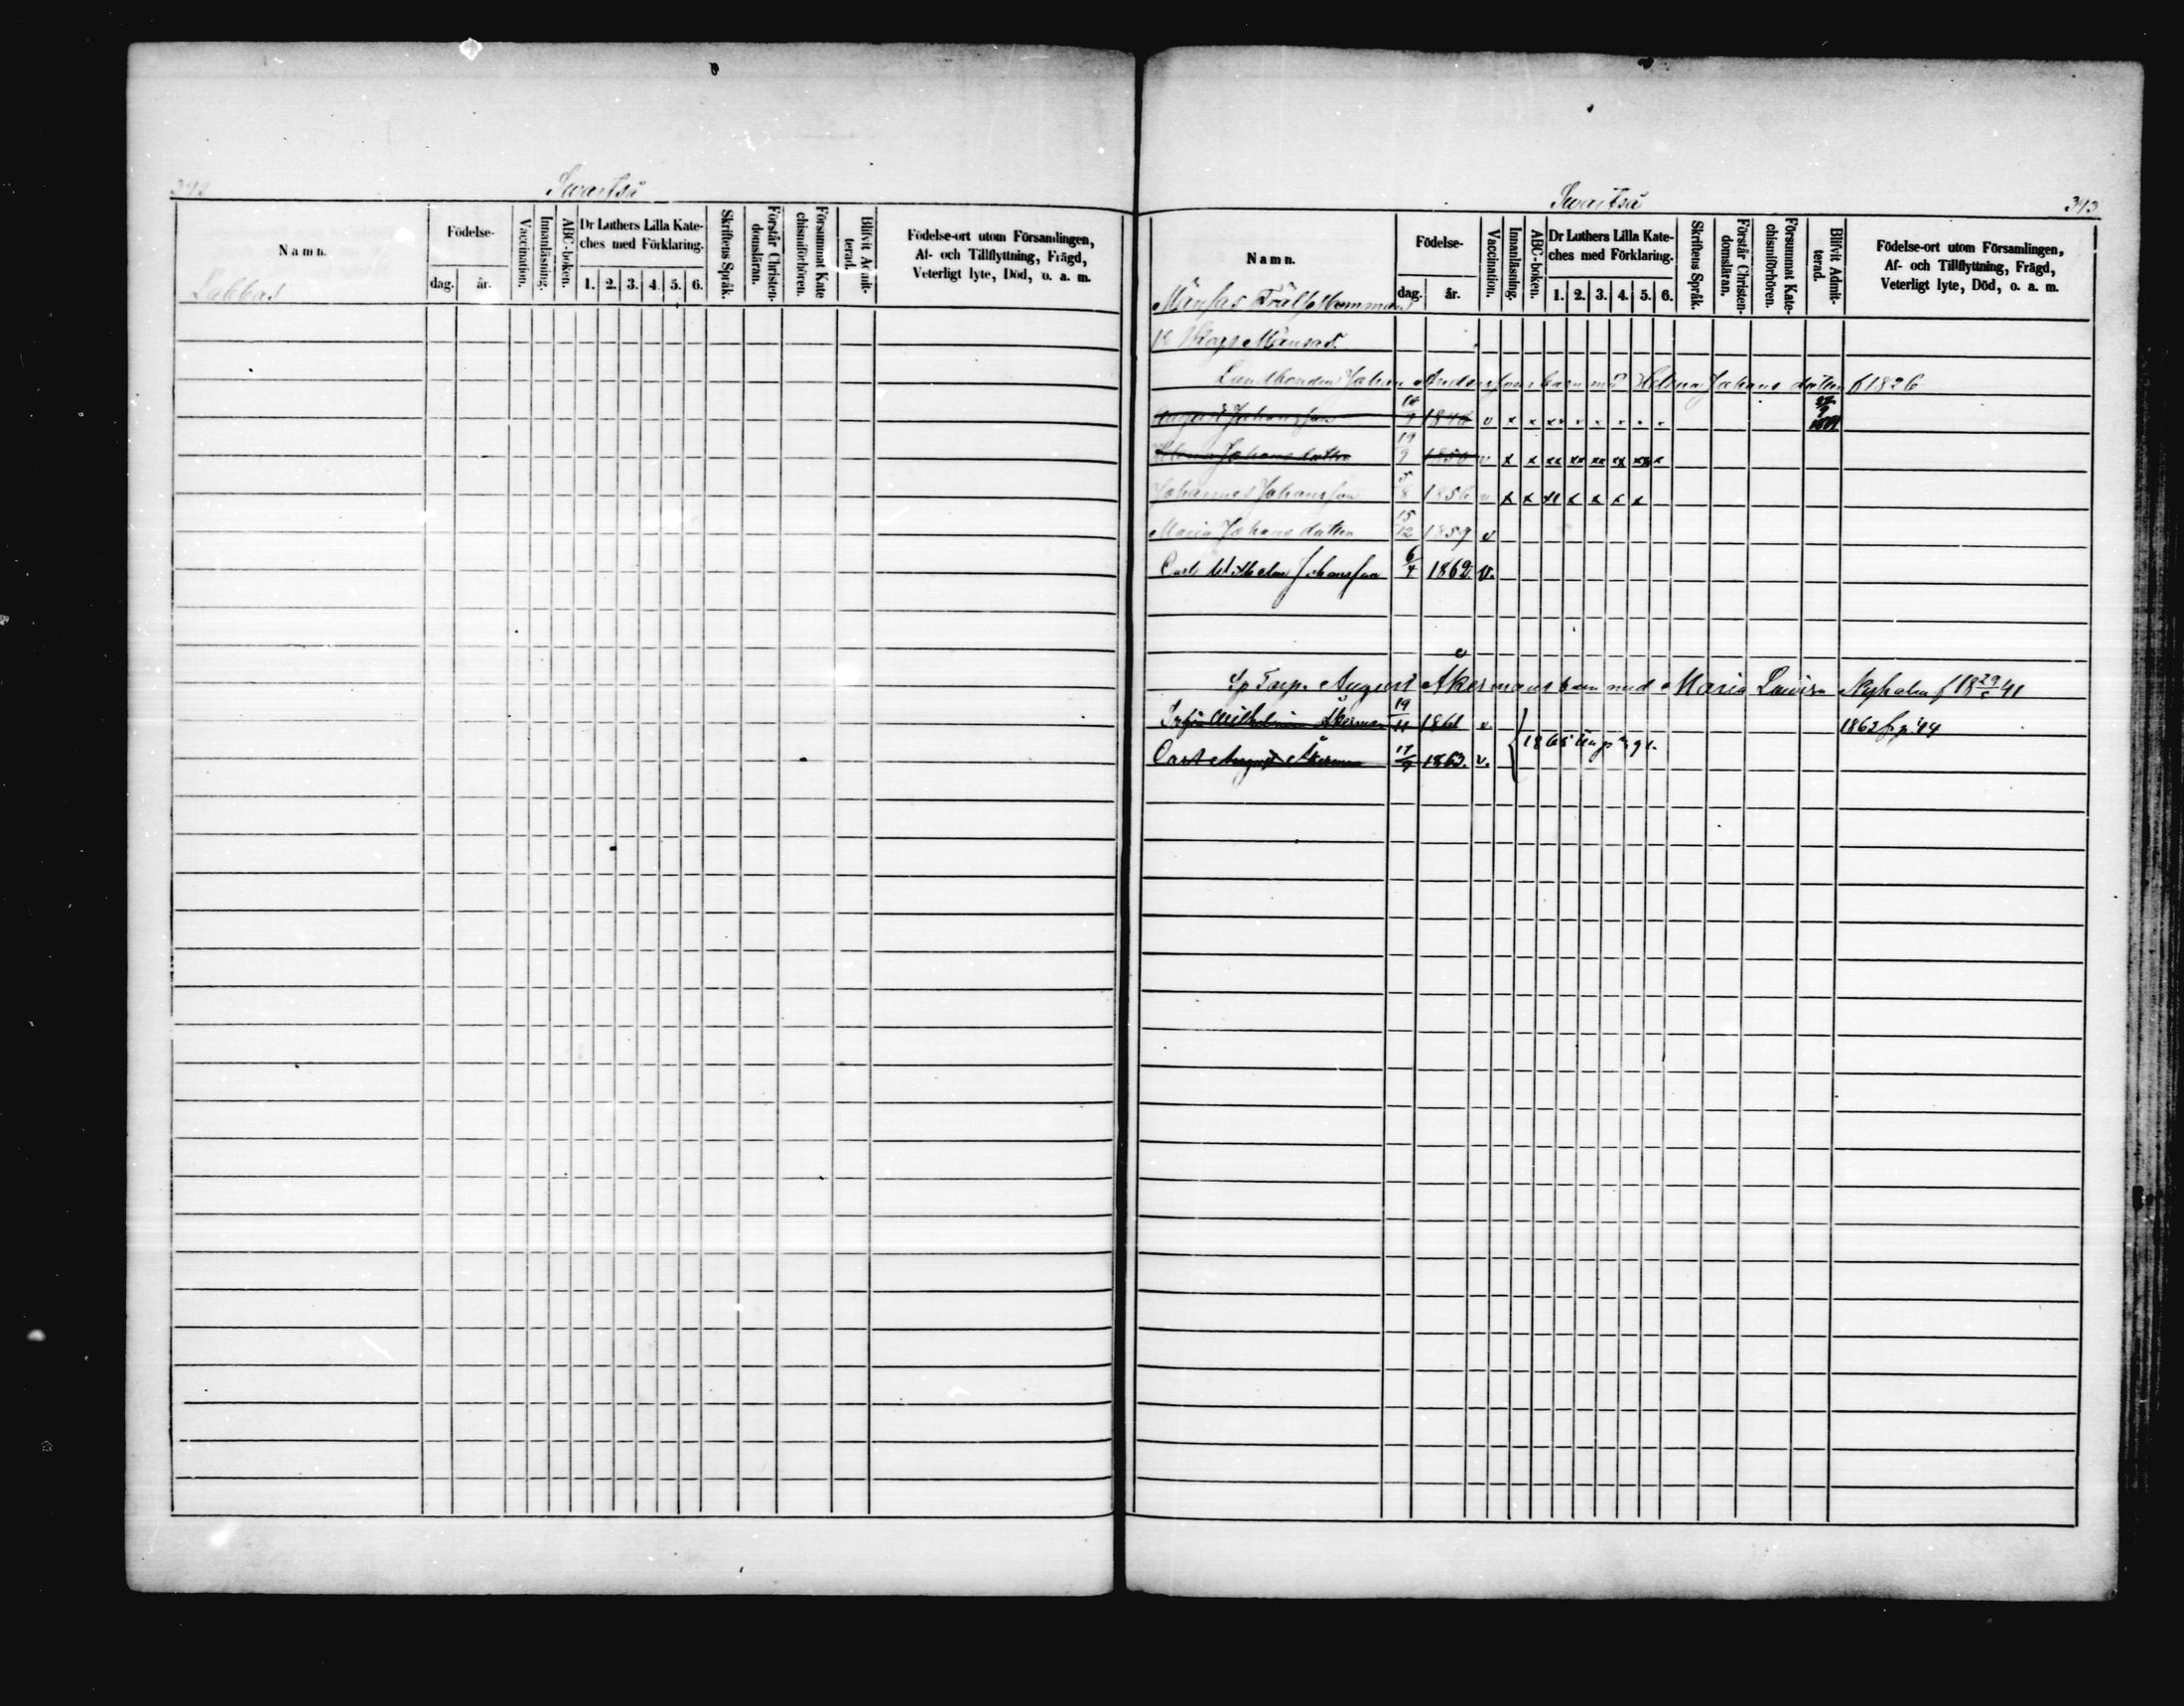 392
Svartså
Namn.
Födelse-
dag. år.
Vaccination.
Innanläsning.
ABC-boken.
Dr Luthers Lilla Kate-
ches med Förklaring.
1. 2. 3. 4. 5. 6.
Skriftens Språk.
Förstår Christen-
domsläran.
Försummat Kate
chismiförhören.
Blifvit Admit-
terad.
Födelse-ort utom Församlingen,
Af- och Tillflyttning, Frägd,
Veterligt lyte, Död, o. a. m.
Labbas
Svartså
393
Namn.
Födelse-
dag. år.
Vaccination.
Innanläsning.
ABC-boken.
Dr Luthers Lilla Kate-
ches med Förklaring.
1. 2. 3. 4. 5. 6.
Skriftens Språk.
Förstår Christen-
domsläran.
Försummat Kate-
chismiförhören.
Blifvit Admit-
terad.
Födelse-ort utom Församlingen,
Af- och Tillflyttning, Frägd,
Veterligt lyte, Död, o. a. m.
Månsas
Månsas
Landbonden Johan Anderssons barn med Helena Johans dotter f 1826
August Johansson 1846 v x x xx
Helena Johansdotter 19/9 1850 v x x xx xx xx xx xx x
Johannes Johansson 5/8 1856 v x x xx x x x x
Maria Johansdotter 15/12 1859 v
Carl Wilhelm Johansson 6/4 1862 v.
Sp Torp. August Åkermans barn med Maria Lovisa Nyholm f 18 29/ 41
Sofia Wilhelmina Åkerman 19/11 1861 v. 1862 f p. 44
Carl August Åkerman 17/9 1863. v. 1865